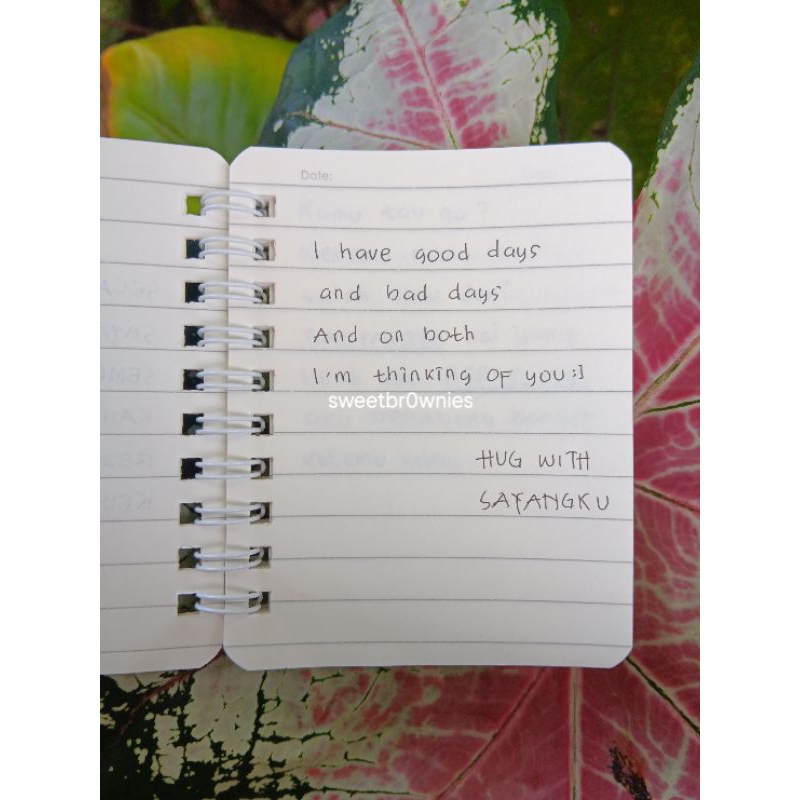 Date:
I have good days
and bad days
And on both
I'm thinking OF you:]
sweetbr0wnies
HUG WITH
SAYANGKU